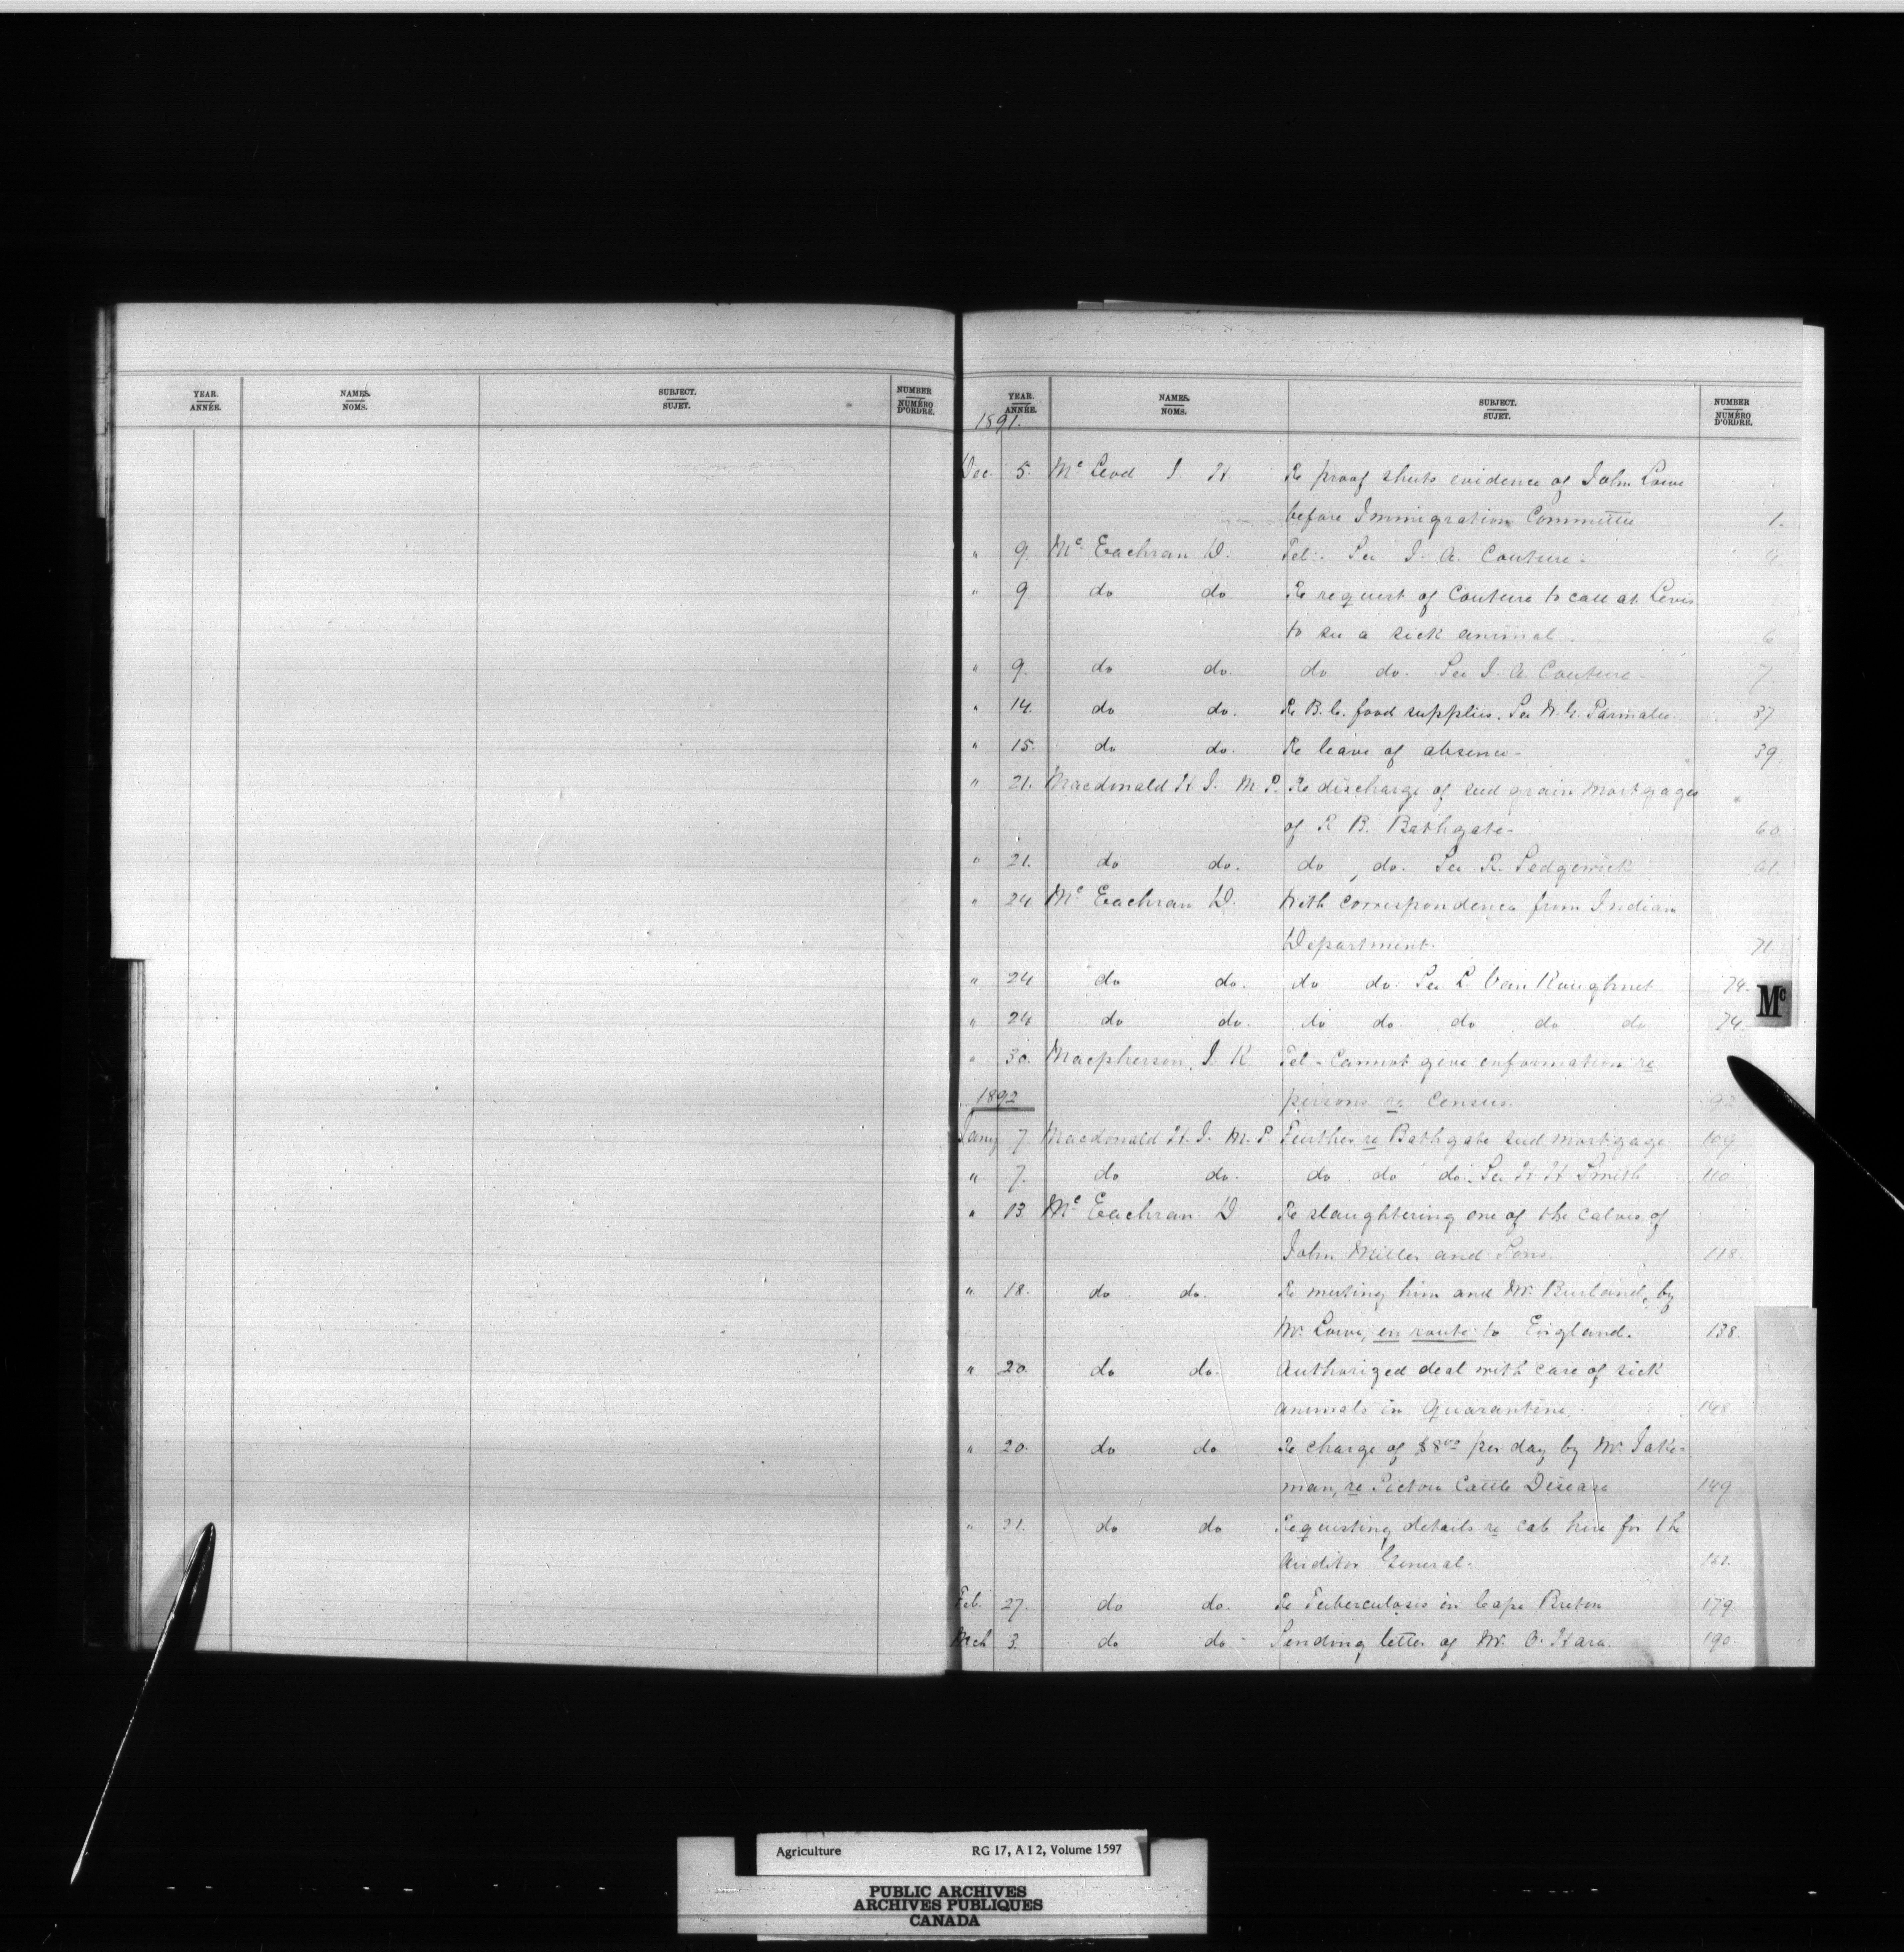 YEAR. NAMES. SUBJECT. NUMBER
ANNÉE. NOMS. SUJET. NUMÉRO D'ORDRE.
YEAR. NAMES. SUBJECT. NUMBER
ANNÉE. NOMS. SUJET. NUMÉRO D'ORDRE.
1891.
Dec. 5. Mc Leod J. H Re proof sheets evidence of John Lowe
before Immigration Committee 1.
" 9. Mc Eachran D. Tel. See J. A. Couture.
" 9 do do Re request of Couture to call at Levis
to see a sick animal. 6
" 9. do do. do do. See J. A. Couture - 7
" 14. do do. Re B.C. food supplies. See W. G. Parmalee. 37
" 15. do do. Re leave of absence - 39
" 21. Macdonald H. J. M.P. Re discharge of seed grain mortgages
of R B. Bathgate - 60
" 21. do do. do do. See R. Sedgewick 61
" 24. Mc Eachran D. With correspondence from Indian
Department. 71.
" 24 do do. do do. See L. Van Koughnet 74.
" 24 do do. do do. do do do 74.
" 30. Macpherson, J. K. Tel - Cannot give information re
1892 persons re Census. 92
Jany 7. Macdonald H. J. M.P. Further re Bathgate seed mortgage 109
" 7. do do. do do do. See H H Smith 110.
" 13. Mc Eachran D Re slaughtering one of the calves of
John Miller and Sons. 118.
" 18. do do. Re meeting him and Mr. Burland, by
Mr. Lowe, en route to England. 138.
" 20. do do. Authorized deal with case of sick
animals in Quarantine. 148
" 20. do do Re charge of $8 00 per day by Mr. Jake-
man, re Pictou Cattle Disease 149
" 21. do do Requesting details re cab hire for the
Auditor General.
Feb. 27. do do. Re Tuberculosis in Cape Breton 179
Mch 3. do do - Sending letter of Mr. O. Hara. 190.
Mc
Agriculture RG 17, A I 2, Volume 1597
PUBLIC ARCHIVES
ARCHIVES PUBLIQUES
CANADA